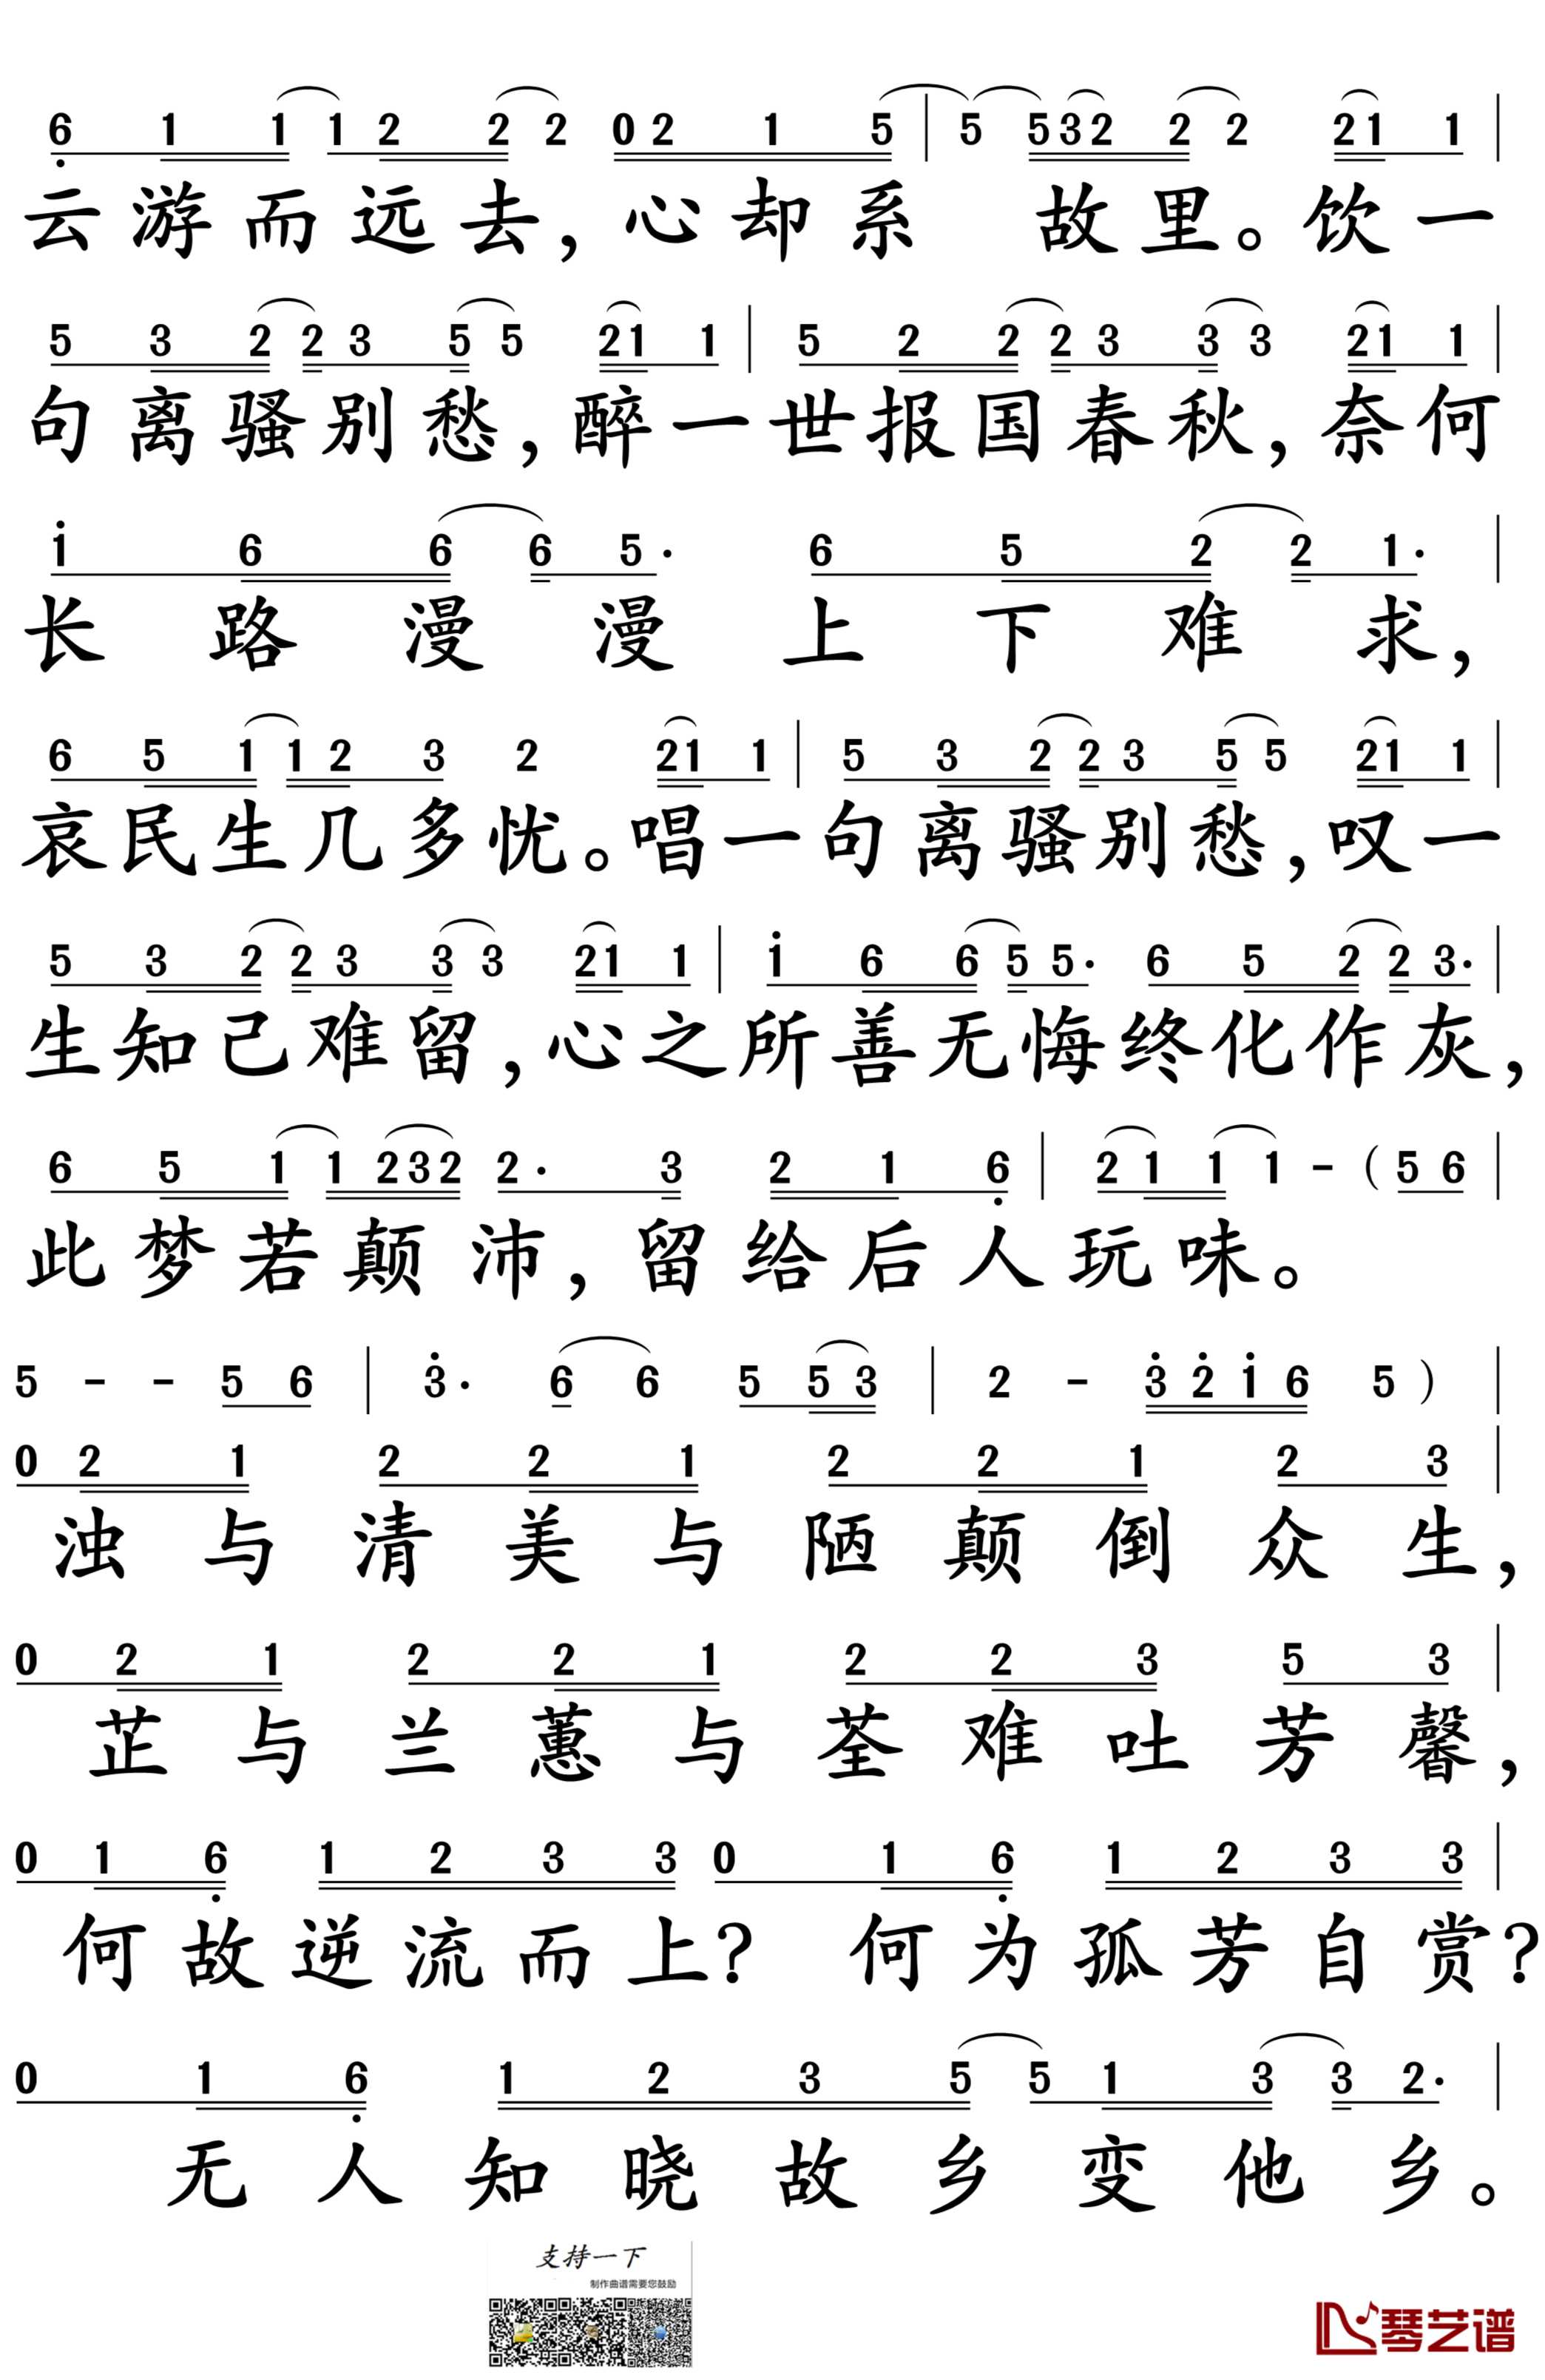 6 1 1 1 2 2 2 0 2 1 5 | 5 5 3 2 2 2 2 1 1 |
云游而远去，心却系 故里。饮一
5 3 2 2 3 5 5 2 1 1 | 5 2 2 2 3 3 3 2 1 1 |
句离骚别愁，醉一世报国春秋，奈何
1 6 6 6 5· 6 5 2 2 1· |
长路漫漫上下难求，
6 5 1 1 2 3 2 2 1 1 | 5 3 2 2 3 5 5 2 1 1 |
哀民生几多忧。唱一句离骚别愁，叹一
5 3 2 2 3 3 3 2 1 1 | 1 6 6 5 5· 6 5 2 2 3· |
生知己难留，心之所善无悔终化作灰，
6 5 1 1 2 3 2 2· 3 2 1 6 | 2 1 1 1 - （ 5 6 |
此梦若颠沛，留给后人玩味。
5 - - 5 6 | 3· 6 6 5 5 3 | 2 - 3 2 1 6 5 ） |
0 2 1 2 2 1 2 2 1 2 3 |
浊与清美与陋颠倒众生，
0 2 1 2 2 1 2 2 3 5 3 |
芷与兰蕙与荃难吐芳馨，
0 1 6 1 2 3 3 0 1 6 1 2 3 3 |
何故逆流而上？ 何为孤芳自赏？
0 1 6 1 2 3 5 5 1 3 3 2· |
无人知晓故乡变他乡。
支持一下
制作曲谱需要您鼓励
琴艺谱